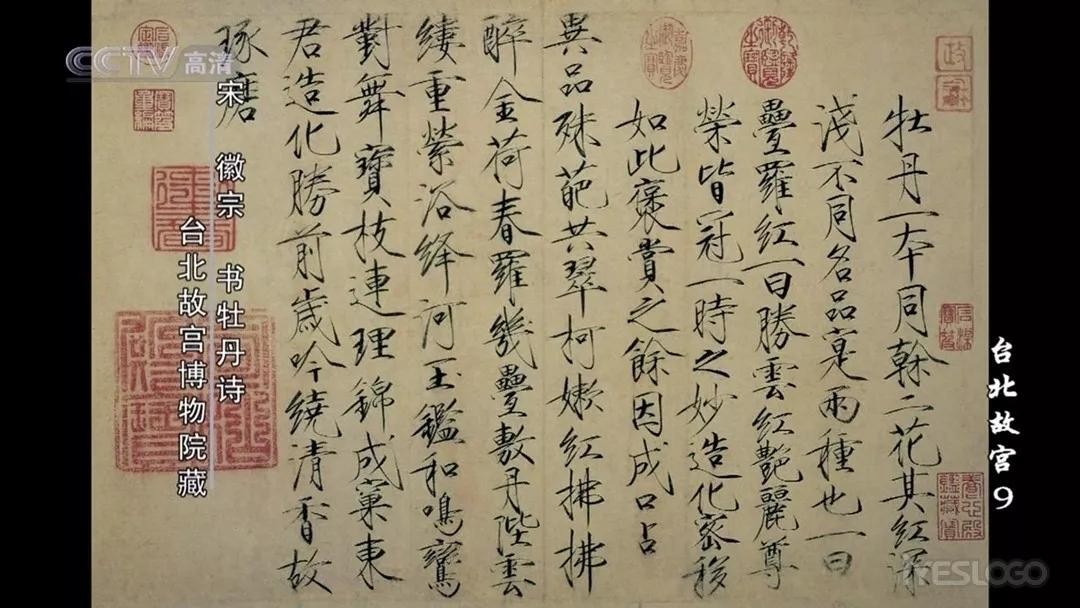 CCTV高清
台北故宫9
牡丹一本同幹二花其紅深
淺不同名品寔兩種也一曰
疊羅紅一曰勝雲紅艷麗尊
榮皆冠一時之妙造化密移
如此褒賞之餘因成口占
異品殊葩共翠柯嫩紅拂拂
醉金荷春羅幾疊敷丹陛雲
縷重縈浴絳河玉鑑和鳴鸞
對舞寶枝連理錦成窠東
君造化勝前歲吟繞清香故
琢磨
宋 徽宗 书牡丹诗
台北故宫博物院藏
乾隆御覽之寶
嘉慶御覽之寶
YESLOGO